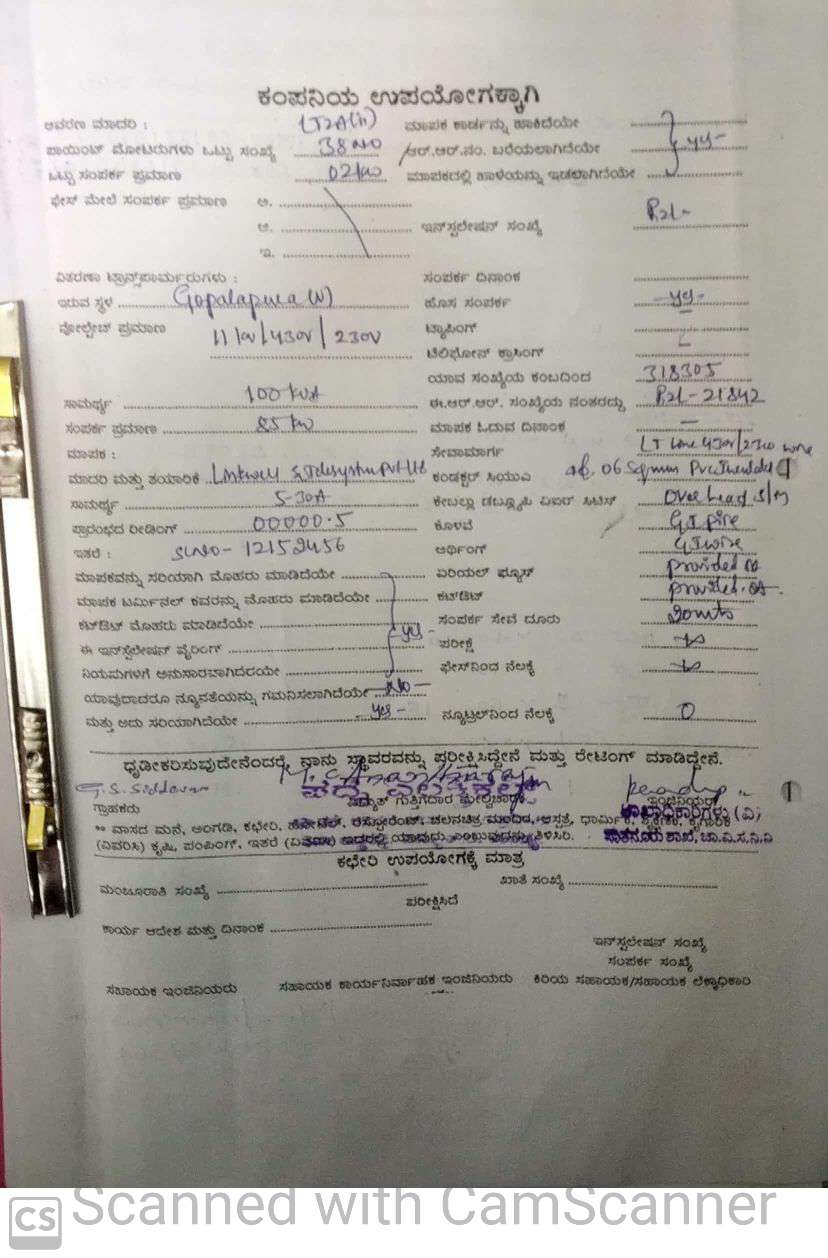 ಕಂಪನಿಯ ಉಪಯೋಗಕ್ಕಾಗಿ
ಆವರಣ ಮಾದರಿ : LT2A(ii) ಮಾಪಕ ಕಾರ್ಡನ್ನು ಹಾಕಿದೆಯೇ
ಪಾಯಿಂಟ್ ಮೋಟರುಗಳು ಒಟ್ಟು ಸಂಖ್ಯೆ 38 NO ಆರ್.ಆರ್.ನಂ. ಬರೆಯಲಾಗಿದೆಯೇ yes-
ಒಟ್ಟು ಸಂಪರ್ಕ ಪ್ರಮಾಣ 02 kw ಮಾಪಕದಲ್ಲಿ ಹಾಳೆಯನ್ನು ಇಡಲಾಗಿದೆಯೇ
ಫೇಸ್ ಮೇಲೆ ಸಂಪರ್ಕ ಪ್ರಮಾಣ ಅ.
ಆ. ಇನ್‌ಸ್ಟಲೇಷನ್ ಸಂಖ್ಯೆ P2L-
ಇ.
ವಿತರಣಾ ಟ್ರಾನ್ಸ್‌ಫಾರ್ಮರುಗಳು : ಸಂಪರ್ಕ ದಿನಾಂಕ
ಇರುವ ಸ್ಥಳ Gopalapura (V) ಹೊಸ ಸಂಪರ್ಕ yes-
ವೋಲ್ಟೇಜ್ ಪ್ರಮಾಣ 11kv/430v/230v ಟ್ಯಾಪಿಂಗ್ -
ಟೆಲಿಫೋನ್ ಕ್ರಾಸಿಂಗ್
ಯಾವ ಸಂಖ್ಯೆಯ ಕಂಬದಿಂದ 318305
ಸಾಮರ್ಥ್ಯ 100 kVA ಈ.ಆರ್.ಆರ್. ಸಂಖ್ಯೆಯ ನಂತರದ್ದು P2L-21842
ಸಂಪರ್ಕ ಪ್ರಮಾಣ 85 kw ಮಾಪಕ ಓದುವ ದಿನಾಂಕ -
ಮಾಪಕ : ಸೇವಾಮಾರ್ಗ LT Line 430v/230 wire
ಮಾದರಿ ಮತ್ತು ತಯಾರಿಕೆ Linkwell Telesystem Pvt Ltd ಕಂಡಕ್ಟರ್ ಸಿಯುವಿ of 06 Sqmm
ಸಾಮರ್ಥ್ಯ 5-30A ಕೇಬಲ್ಲು ಡಬ್ಲ್ಯೂಪಿ ವಿಐರ್ ಸಿಟಿಸ್ Over head S/M
ಪ್ರಾರಂಭದ ರೀಡಿಂಗ್ 00000.5 ಕೊಳವೆ GI pire
ಇತರೆ : SLNO- 12152456 ಅರ್ಥಿಂಗ್ GI wire
ಮಾಪಕವನ್ನು ಸರಿಯಾಗಿ ಮೊಹರು ಮಾಡಿದೆಯೇ ಏರಿಯಲ್ ಫ್ಯೂಸ್ provided
ಮಾಪಕ ಟರ್ಮಿನಲ್ ಕವರನ್ನು ಮೊಹರು ಮಾಡಿದೆಯೇ ಕಟ್‌ಔಟ್ provided.
ಕಟ್‌ಔಟ್ ಮೊಹರು ಮಾಡಿದೆಯೇ ಸಂಪರ್ಕ ಸೇವೆ ದೂರು 20mts
ಈ ಇನ್‌ಸ್ಟಲೇಷನ್ ವೈರಿಂಗ್ yes - ಪರೀಕ್ಷೆ
ನಿಯಮಗಳಿಗೆ ಅನುಸಾರವಾಗಿದೆಯೇ ಫೇಸ್‌ನಿಂದ ನೆಲಕ್ಕೆ
ಯಾವುದಾದರೂ ನ್ಯೂನತೆಯನ್ನು ಗಮನಿಸಲಾಗಿದೆಯೇ No -
ಮತ್ತು ಅದು ಸರಿಯಾಗಿದೆಯೇ yes - ನ್ಯೂಟ್ರಲ್‌ನಿಂದ ನೆಲಕ್ಕೆ 0
ಧೃಡೀಕರಿಸುವುದೇನೆಂದರೆ, ನಾನು ಸ್ಥಾವರವನ್ನು ಪರೀಕ್ಷಿಸಿದ್ದೇನೆ ಮತ್ತು ರೇಟಿಂಗ್ ಮಾಡಿದ್ದೇನೆ.
ಗ್ರಾಹಕರು ವಿದ್ಯುತ್ ಗುತ್ತಿಗೆದಾರ ಮೇಲ್ವಿಚಾರಕ ಇಂಜಿನಿಯರ್
** ವಾಸದ ಮನೆ, ಅಂಗಡಿ, ಕಛೇರಿ, ಹೋಟೆಲ್, ರೆಸ್ಟೋರೆಂಟ್, ಚಲನಚಿತ್ರ ಮಂದಿರ, ಆಸ್ಪತ್ರೆ, ಧಾರ್ಮಿಕ, ಶೈಕ್ಷಣಿಕ, ಕೈಗಾರಿಕೆ
(ವಿವರಿಸಿ) ಕೃಷಿ, ಪಂಪಿಂಗ್, ಇತರೆ (ವಿವರಿಸಿ) ಇದ್ದರಲ್ಲಿ ಯಾವುದು ಎಂಬುವುದನ್ನು ತಿಳಿಸಿರಿ. ಶಾಖೆ, ಚಾ.ವಿ.ಸ.ನಿ.ನಿ
ಕಛೇರಿ ಉಪಯೋಗಕ್ಕೆ ಮಾತ್ರ
ಮಂಜೂರಾತಿ ಸಂಖ್ಯೆ ಖಾತೆ ಸಂಖ್ಯೆ
ಪರೀಕ್ಷಿಸಿದೆ
ಕಾರ್ಯ ಆದೇಶ ಮತ್ತು ದಿನಾಂಕ
ಇನ್‌ಸ್ಟಲೇಷನ್ ಸಂಖ್ಯೆ
ಸಂಪರ್ಕ ಸಂಖ್ಯೆ
ಸಹಾಯಕ ಇಂಜಿನಿಯರು ಸಹಾಯಕ ಕಾರ್ಯನಿರ್ವಾಹಕ ಇಂಜಿನಿಯರು ಕಿರಿಯ ಸಹಾಯಕ/ಸಹಾಯಕ ಲೆಕ್ಕಾಧಿಕಾರಿ
CS Scanned with CamScanner